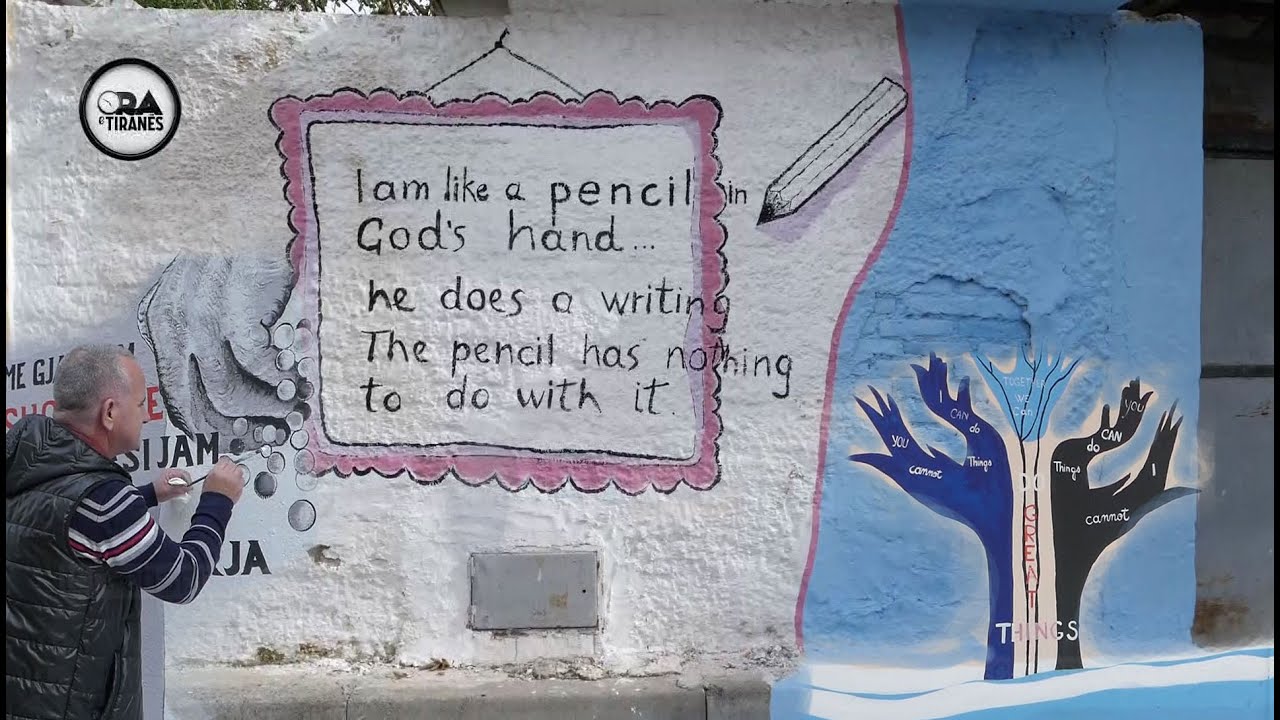 ORA
e TIRANËS
I am like a pencil in
God's hand...
he does a writing
The pencil has nothing
to do with it.
ME
SI JAM
YOU
cannot
I
CAN do
Things
TOGETHER
WE
can
DO
GREAT
THINGS
YOU
do CAN
Things
I
cannot